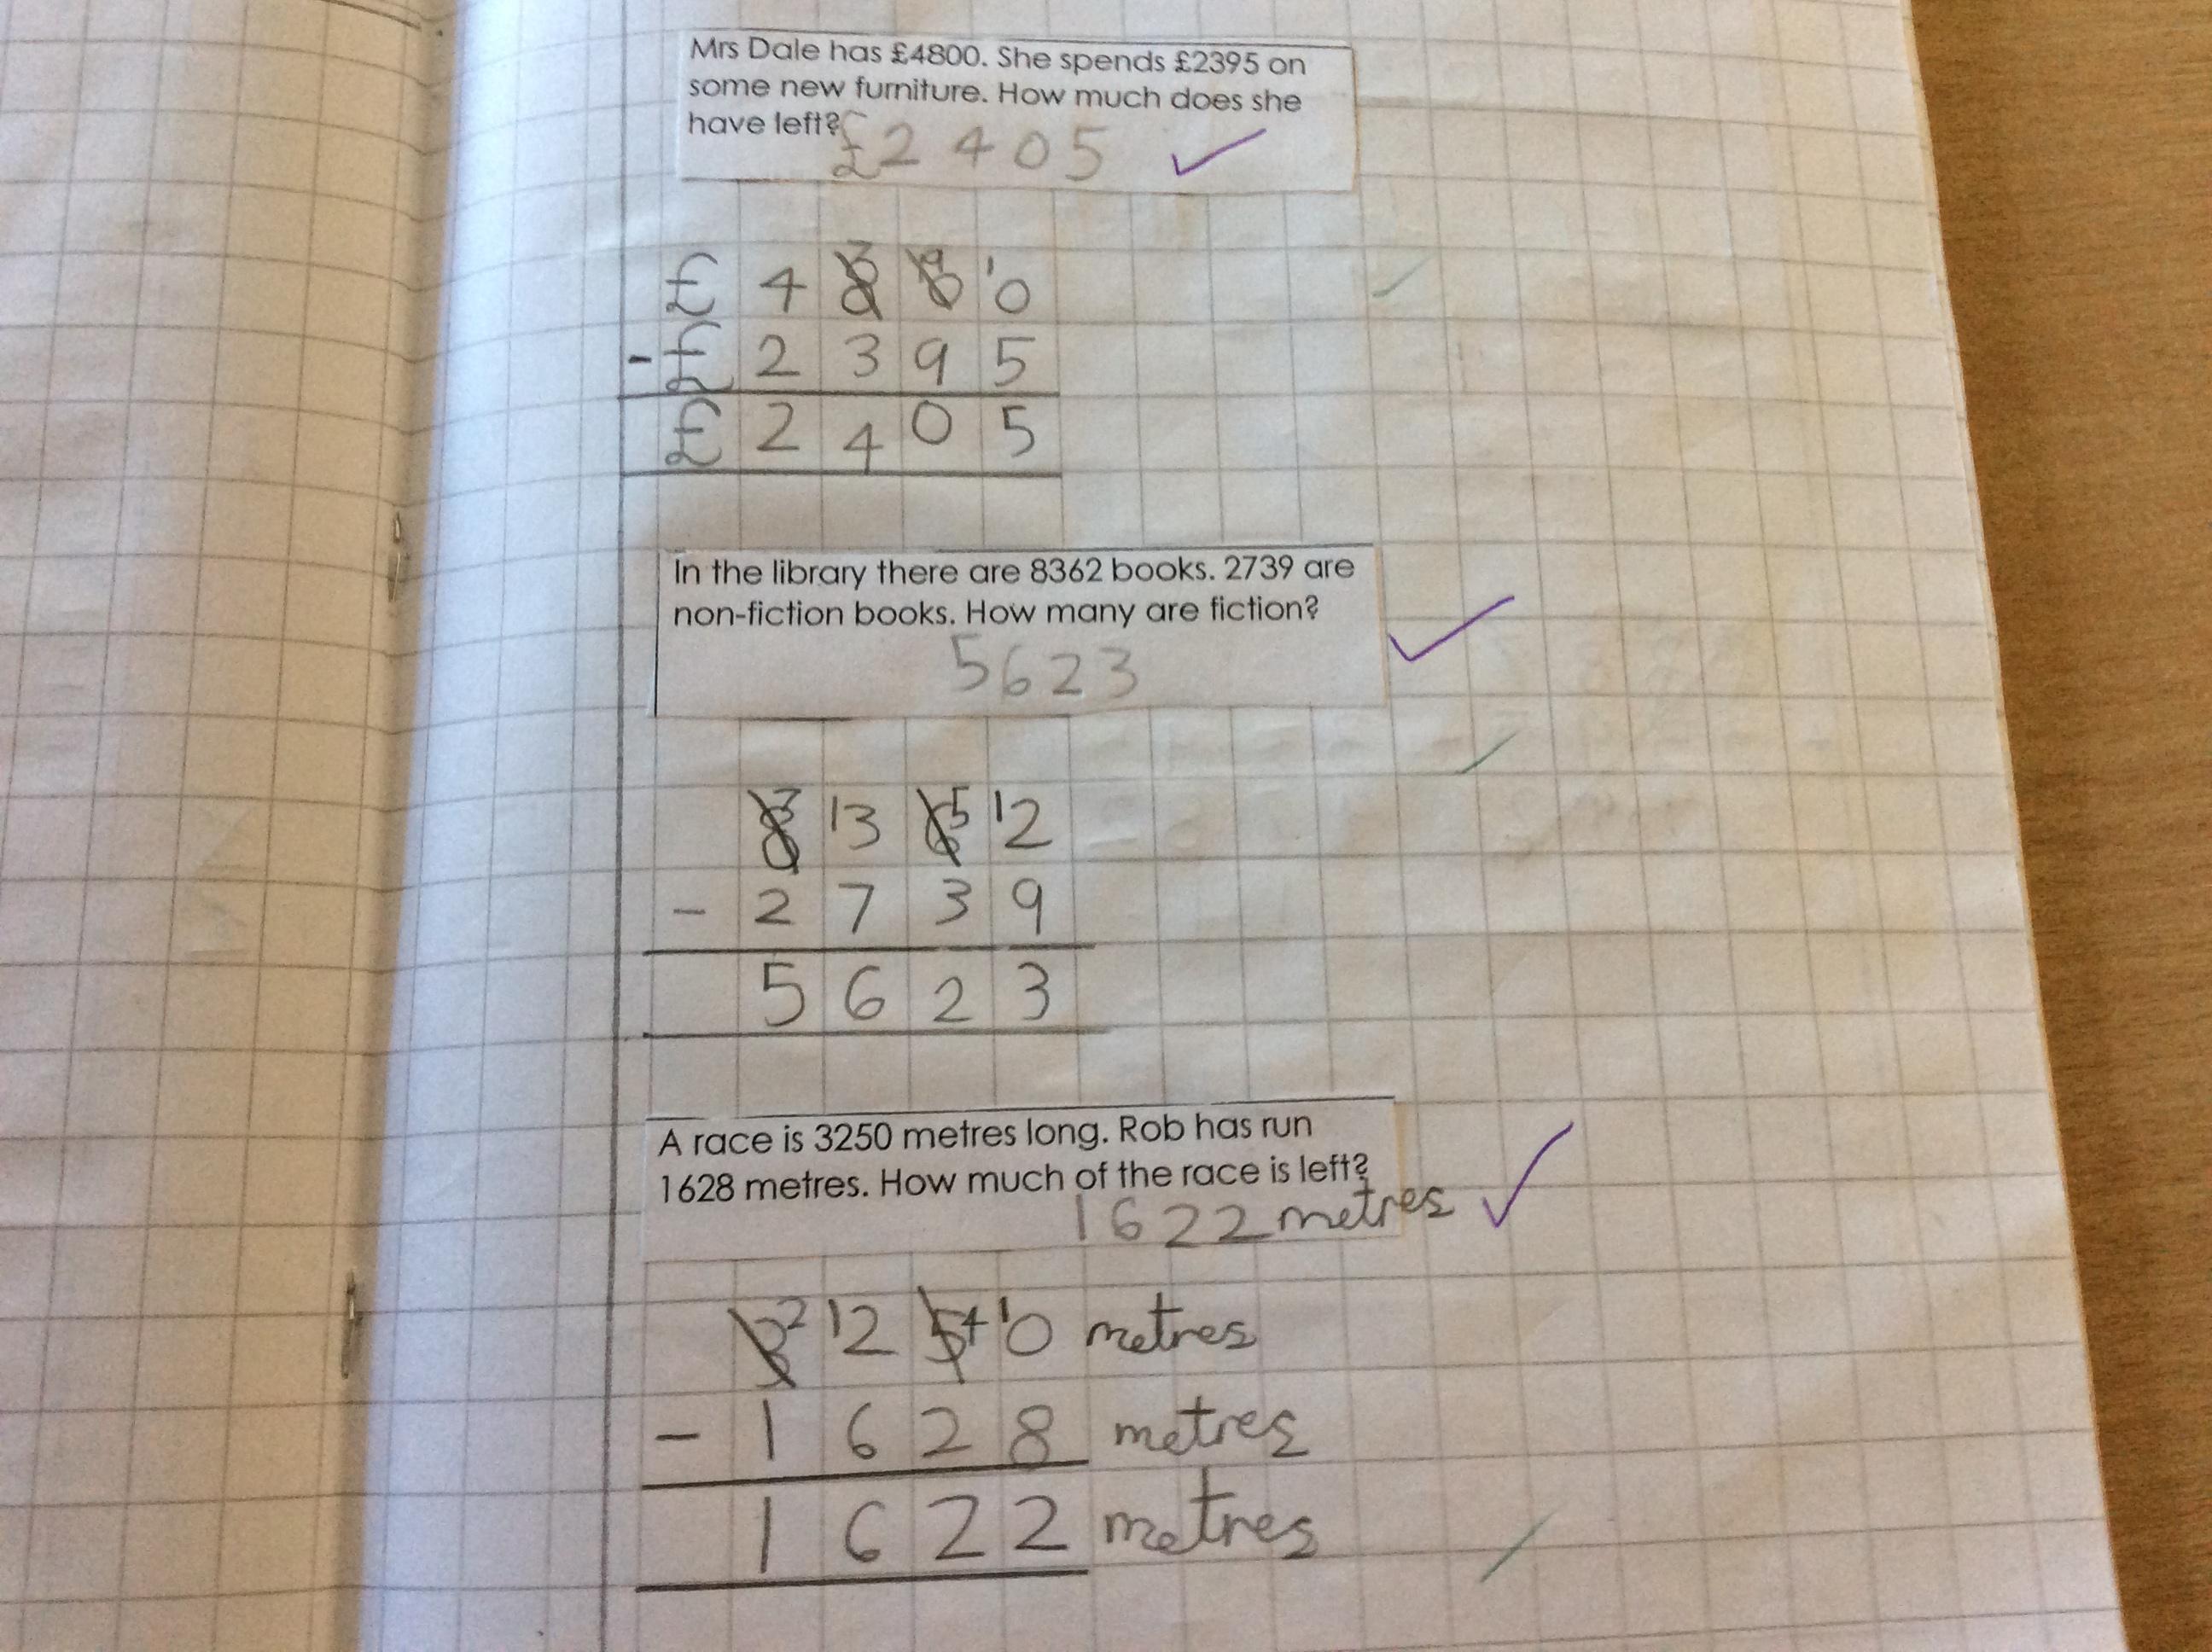 Mrs Dale has £4800. She spends £2395 on
some new furniture. How much does she
have left?
£2405
£ 4 8 7 0 9 10
- £ 2 3 9 5
£ 2 4 0 5
In the library there are 8362 books. 2739 are
non-fiction books. How many are fiction?
5623
8 7 13 6 5 12
- 2 7 3 9
5 6 2 3
A race is 3250 metres long. Rob has run
1628 metres. How much of the race is left?
1622 metres
3 2 12 5 4 10 metres
- 1 6 2 8 metres
1 6 2 2 metres